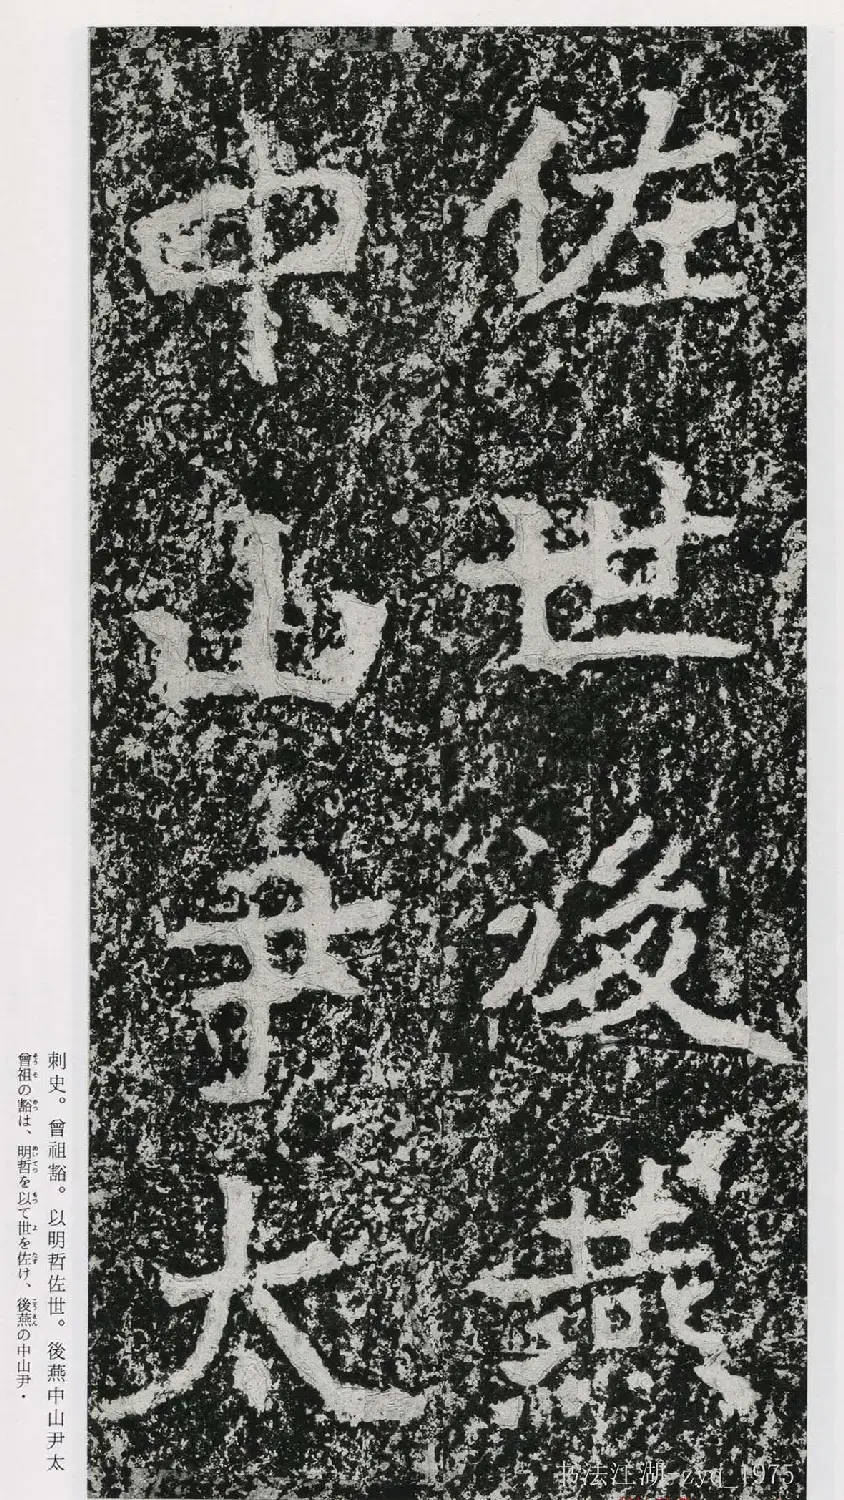 佐世後燕
中山尹太
刺史。曾祖豁。以明哲佐世。後燕中山尹太
曾祖の豁は、明哲を以て世を佐け、後燕の中山尹・
书法江湖 zyq_1975